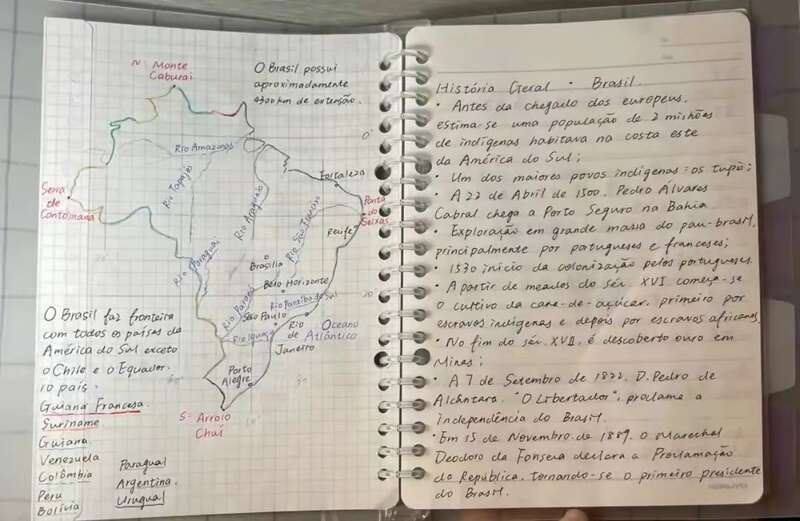 N: Monte
Caburaí
O Brasil possui
aproximadamente
4300 km de extensão.
0°
Rio Amazonas
Rio Tapajós
Rio Araguaia
Fortaleza
Serra
de
Contamana
Ponta
do
Seixas
Recife
Rio São Francisco
Rio Paraguai
Brasília
Belo Horizonte
Rio Paraná
Rio Paraíba do Sul
São Paulo
Rio Iguaçu
Rio
de
Janeiro
Oceano
Atlântico
Porto
Alegre
S: Arroio
Chuí
O Brasil faz fronteira
com todos os países da
América do Sul exceto
o Chile e o Equador.
10 país.
Guiana Francesa.
Suriname
Guiana
Venezuela
Colômbia
Peru
Bolívia
Paraguai
Argentina
Uruguai
História Geral · Brasil.
· Antes da chegado dos europeus,
estima-se uma população de 2 milhões
de indígenas habitava na costa este
da América do Sul;
· Um dos maiores povos indígenas: os tupis;
· A 22 de Abril de 1500, Pedro Álvares
Cabral chega a Porto Seguro na Bahia
· Exploração em grande massa do pau-brasil,
principalmente por portugueses e franceses;
· 1530 início da colonização pelos portugueses.
· A partir de meados do séc. XVI começa-se
o cultivo da cana-de-açúcar, primeiro por
escravos indígenas e depois por escravos africanos
· No fim do séc. XVII, é descoberto ouro em
Minas;
· A 7 de Setembro de 1822, D. Pedro de
Alcântara, "O Libertador", proclame a
independência do Brasil.
· Em 15 de Novembro de 1889, o Marechal
Deodoro da Fonseca declara a Proclamação
do República, tornando-se o primeiro presidente
do Brasil.